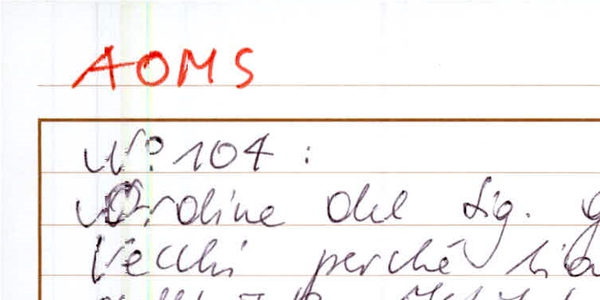 AOMS
N° 104 :
Ordine del Sig. G
Vecchi perché sia